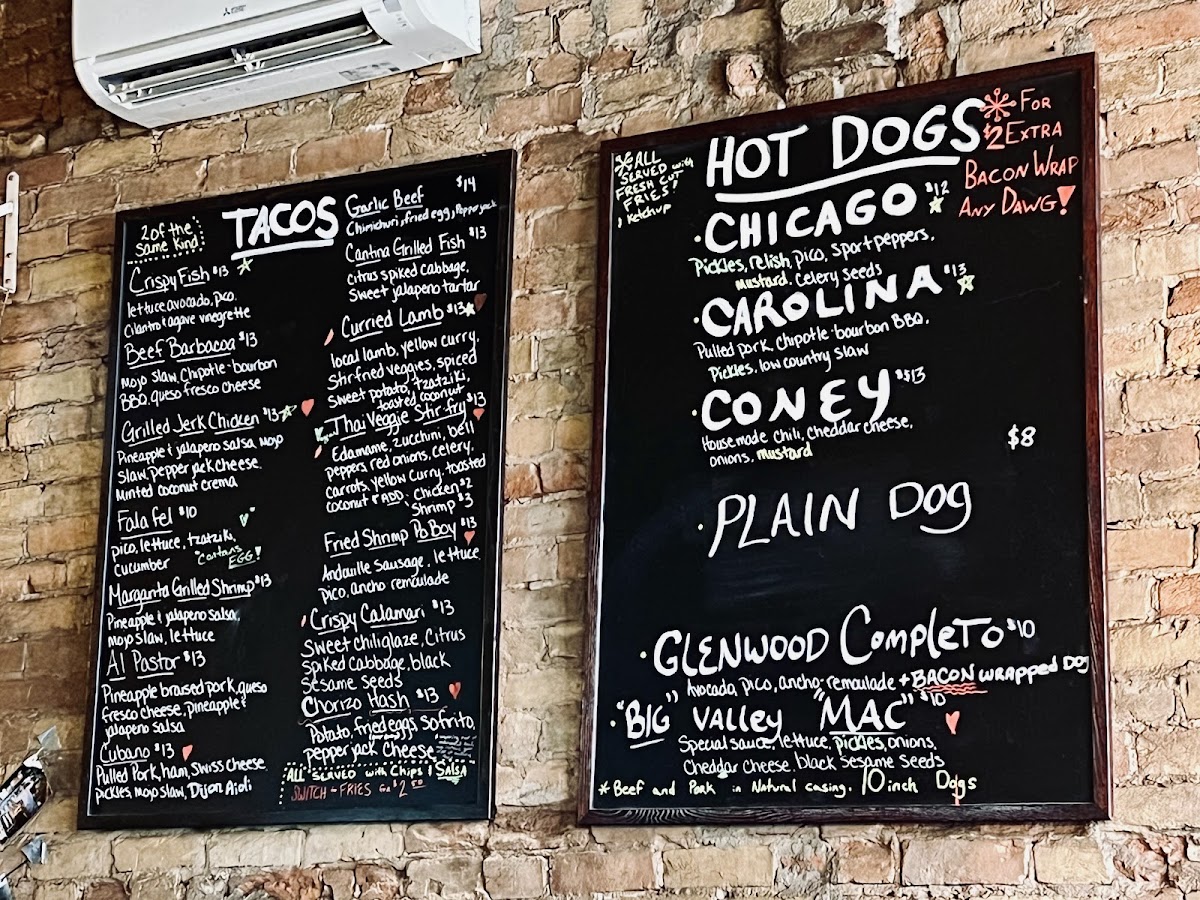 MITSUBISHI ELECTRIC
2 of the
Same kind
TACOS
Crispy Fish $13
lettuce, avocado, pico,
Cilantro & agave vinegrette
Beef Barbacoa $13
Mojo Slaw, Chipotle-bourbon
BBQ, queso fresco cheese
Grilled Jerk Chicken $13
Pineapple & jalapeno salsa, mojo
Slaw, pepper jack cheese,
Minted coconut crema
Falafel $10
pico, lettuce, tzatziki,
Cucumber
EGG!
Margarita Grilled Shrimp $13
Pineapple & jalapeno salsa,
mojo slaw, lettuce
Al Pastor $13
Pineapple braised pork, queso
fresco cheese, pineapple &
jalapeno salsa
Cubano $13
Pulled Pork, ham, Swiss cheese,
pickles, mojo slaw, Dijon Aioli
Garlic Beef $14
Chimichuri, fried egg, Pepperjack
Cantina Grilled Fish $13
citrus spiked cabbage,
Sweet jalapeno tartar
Curried Lamb $13
local lamb, yellow curry,
Stir fried veggies, spiced
sweet potato, tzatziki,
toasted coconut
Thai Veggie Stir-fry $13
Edamame, zucchini, bell
peppers, red onions, celery,
carrots, yellow curry, toasted
coconut * ADD: Chicken $2
Shrimp $3
Fried Shrimp Po Boy $13
Andouille Sausage, lettuce,
pico, ancho remoulade
Crispy Calamari $13
Sweet chili glaze, Citrus
Spiked Cabbage, black
Sesame Seeds
Chorizo Hash $13
Potato, fried eggs, Sofrito,
pepper jack cheese
ALL SERVED with Chips & SALSA
SWITCH - FRIES $2
*ALL
SERVED with
FRESH CUT
FRIES!
Ketchup
HOT DOGS
* FOR
$2 EXTRA
BACON WRAP
ANY DAWG!
·CHICAGO $12
Pickles, relish, pico, sport peppers,
mustard, celery seeds
·CAROLINA $13
Pulled pork, chipotle-bourbon BBQ,
Pickles, low country slaw
·CONEY $13
House made chili, cheddar cheese,
onions, mustard
$8
·PLAIN DOg
·GLENWOOD COMPLETO $10
Avocado, pico, ancho-remoulade + BACON wrapped DOg
·"BIG" VAlley "MAC" $10
Special sauce, lettuce, pickles, onions,
Cheddar cheese, black Sesame Seeds
* Beef and Pork in Natural casing. 10 inch Dogs